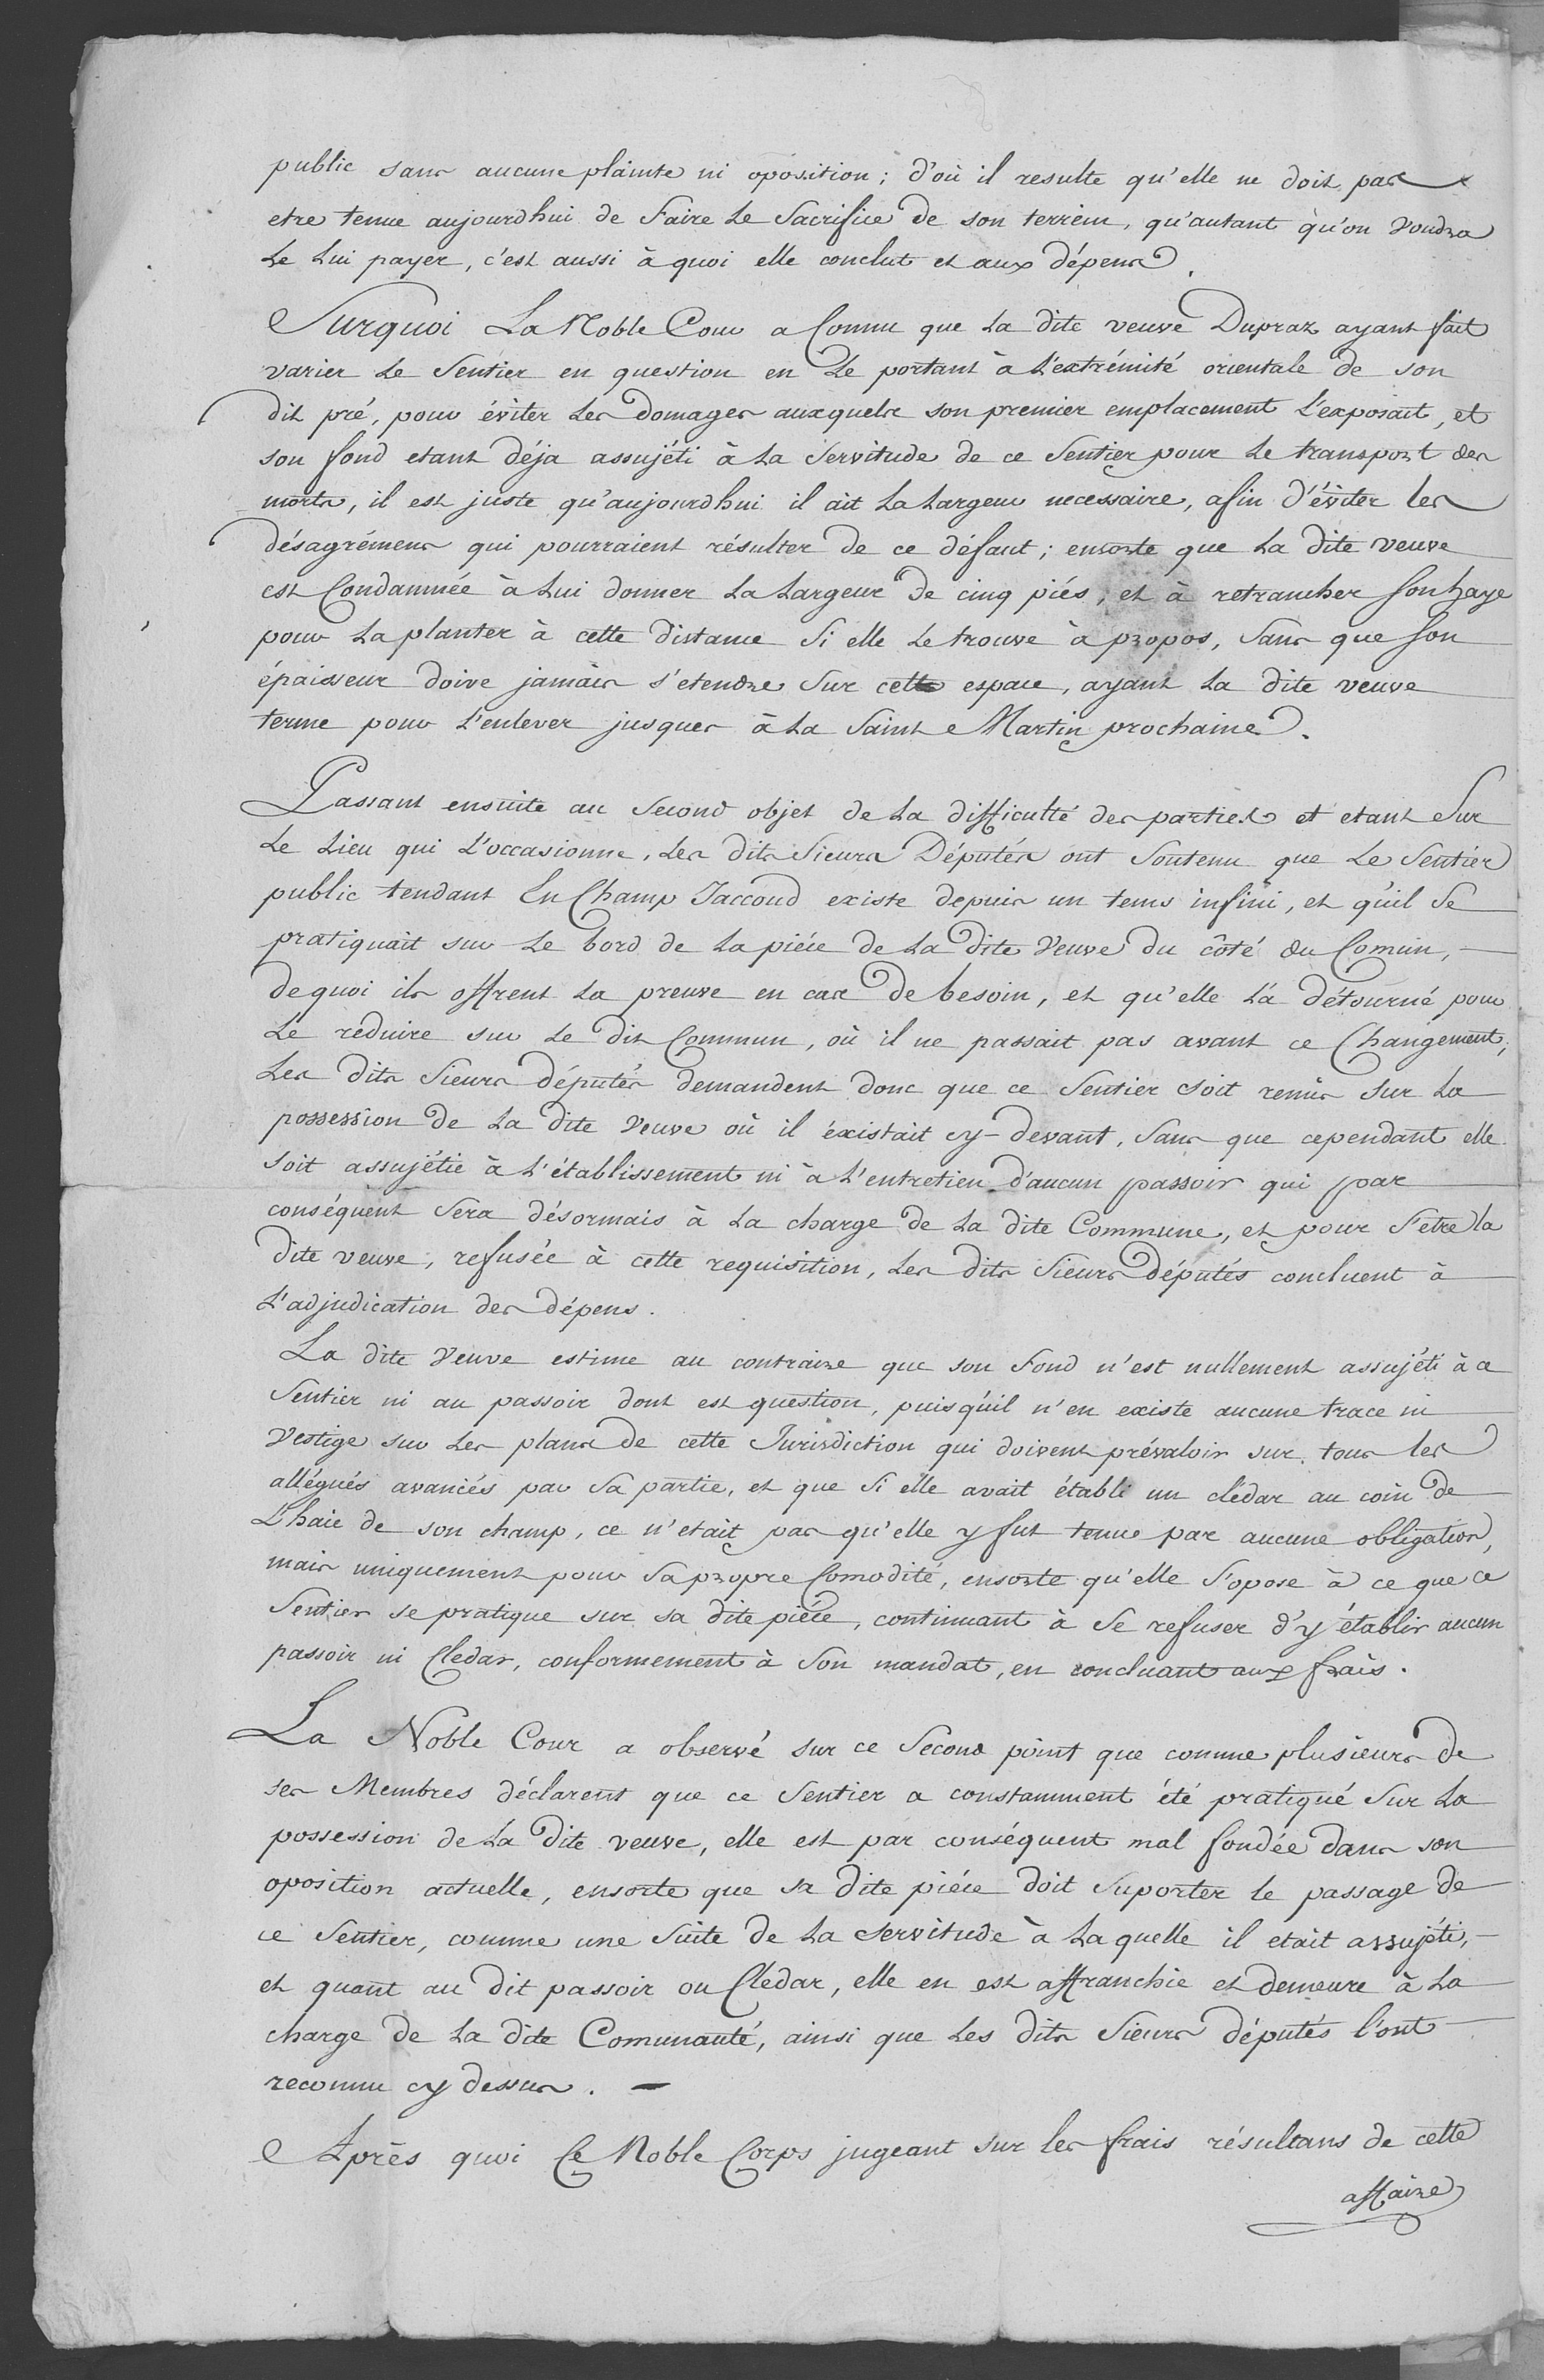 public sans aucune plainte ni oposition ; d'où il resulte qu'elle ne doit pas
etre tenue aujourdhui de faire le Sacrifice de son terrein, qu'autant qu'on voudra
le lui payer, c'est aussi à quoi elle conclut et aux dépens.
Surquoi La Noble Cour a Connu que la dite veuve Dupraz ayant fait
varier le Sentier en question en le portant à l'extrémité orientale de son
dit pré, pour éviter les domages auxquels son premier emplacement l'exposait, et
son fond etant déja assujéti à la Servitude de ce Sentier pour le transport des
morts, il est juste qu'aujourdhui il ait la largeur necessaire, afin d'éviter les
désagrémens qui pourraient résulter de ce défaut ; ensorte que la dite veuve
est Condamnée à lui donner la largeur de cinq piés, et à retrancher son haye
pour la planter à cette distance Si elle le trouve à propos, Sans que son
épaisseur doive jamais s'etendre Sur cette espace, ayant la dite veuve
terme pour l'enlever jusques à la Saint Martin prochaine.
Passant ensuite au Second objet de la difficulté des parties et etant Sur
le lieu qui l'occasionne, les dits Sieurs Députés ont Soutenu que le Sentier
public tendant En Champ Jaccoud existe depuis un tems infini, et qu'il Se
pratiquait sur le bord de la piéce de la dite Veuve du côté du Comun,
dequoi ils offrent la preuve en cas de besoin, et qu'elle l'a détourné pour
le réduire sur le dit Commun, où il ne passait pas avant ce Changement,
les dits Sieurs députés demandent donc que ce Sentier Soit remis Sur la
possession de la dite veuve où il éxistait cy-devant, Sans que cependant elle
soit assujétie à l'établissement ni à l'entretien d'aucun passoir qui par
conséquent Sera désormais à la charge de la dite Commune, et pour S'etre la
dite veuve, refusée à cette requisition, les dits Sieurs députés concluent à
l'adjudication des dépens.
La dite Veuve estime au contraire que son fond n'est nullement assujéti à ce
Sentier ni au passoir dont est question, puisqu'il n'en existe aucune trace ni
Vestige sur les plans de cette Jurisdiction qui doivent prévaloir sur tous les
allégués avancés par Sa partie, et que Si elle avait établi un clédar au coin de
l'haie de son champ, ce n'etait pas qu'elle y fut tenue par aucune obligation,
mais uniquement pour Sa propre Comodité, ensorte qu'elle S'opose à ce que ce
Sentier se pratique sur sa dite piéce, continuant à Se refuser d'y établir aucun
passoir ni Clédar, conformement à Son mandat, en concluant aux frais.
La Noble Cour a observé sur ce Second point que comme plusieurs de
ses Membres déclarent que ce Sentier a constamment été pratiqué Sur la
possession de la dite veuve, elle est par conséquent mal fondée dans son
oposition actuelle, ensorte que sa dite piéce doit Suporter le passage de
ce Sentier, comme une Suite de la Servitude à laquelle il etait assujéti,
et quant au dit passoir ou Clédar, elle en est affranchie et demeure à la
charge de la dite Comunauté, ainsi que les dits Sieurs députés l'ont
reconnu cy dessus. —
Après quoi Ce Noble Corps jugeant sur les frais résultans de cette
affaire